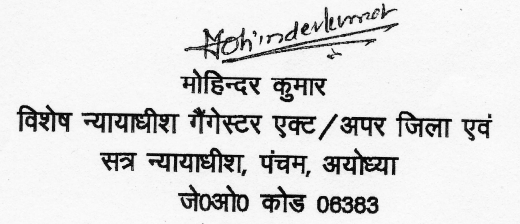 Mohinderkumar
मोहिन्दर कुमार
विशेष न्यायाधीश गैंगेस्टर एक्ट/अपर जिला एवं
सत्र न्यायाधीश, पंचम, अयोध्या
जे0ओ0 कोड 06383